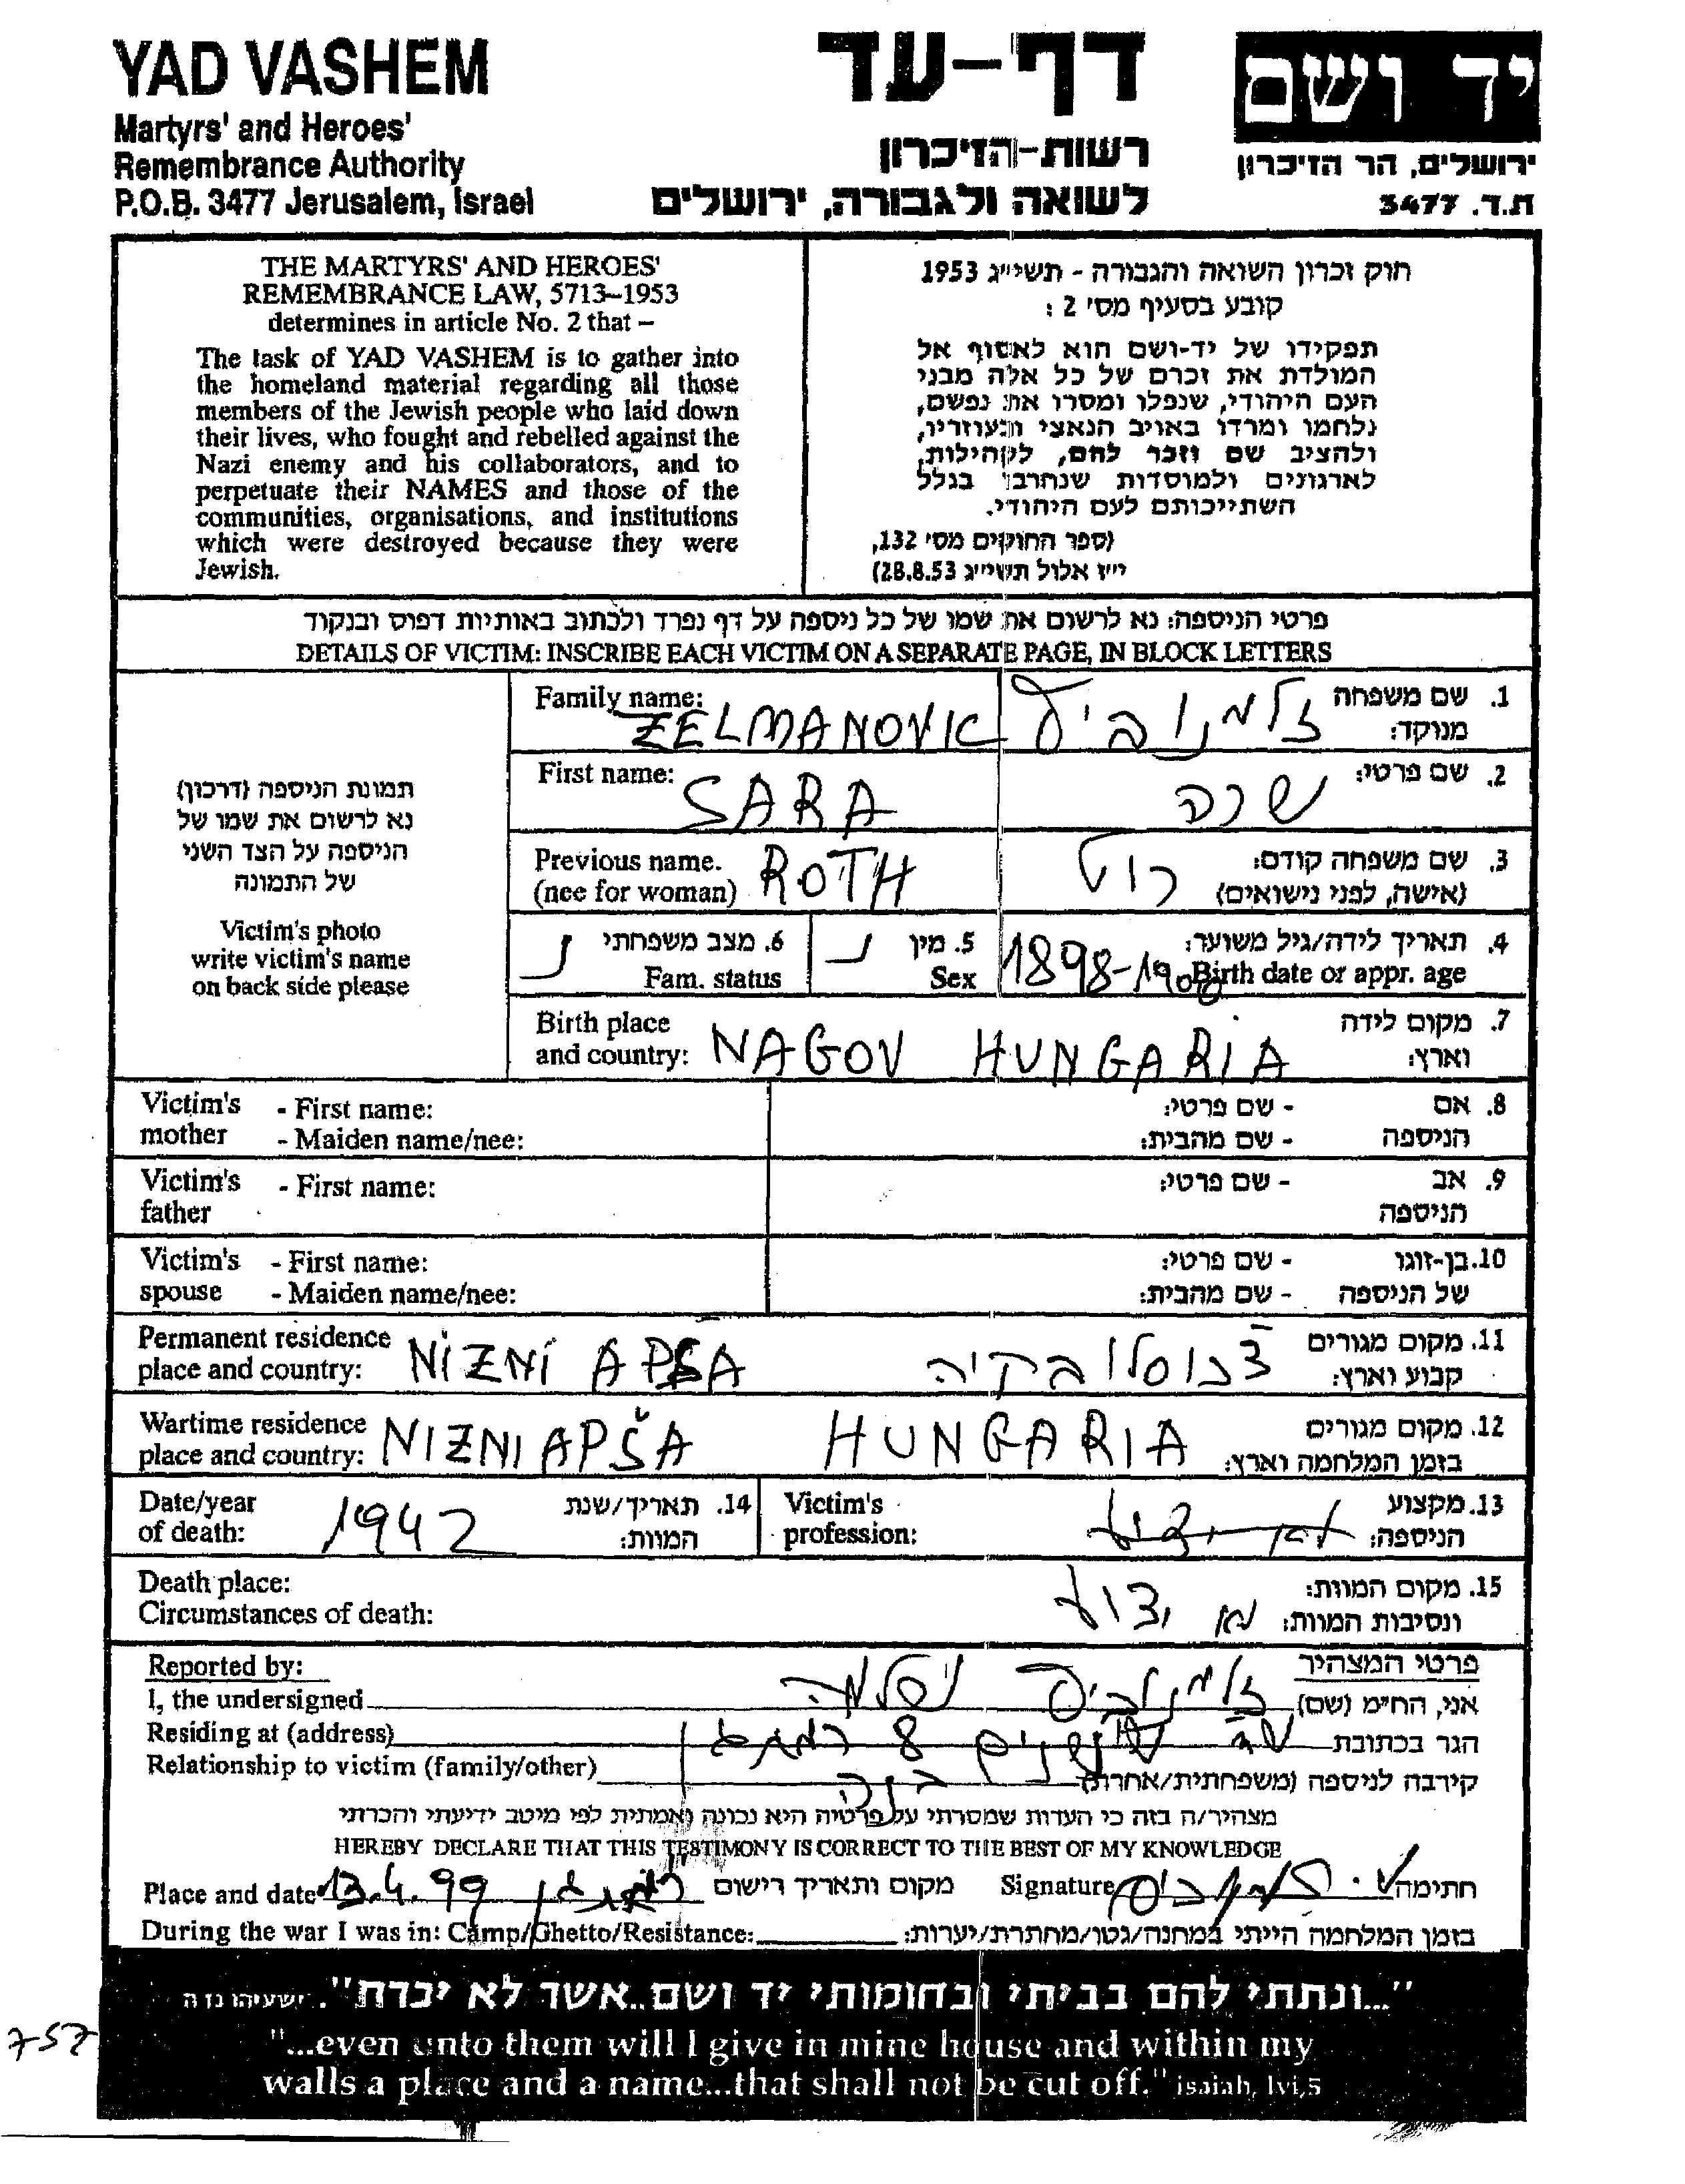 YAD VASHEM
Martyrs' and Heroes'
Remembrance Authority
P.O.B. 3477 Jerusalem, Israel
דף-עד
רשות-הזיכרון
לשואה ולגבורה, ירושלים
יד ושם
ירושלים, הר הזיכרון
ת.ד. 3477
THE MARTYRS' AND HEROES'
REMEMBRANCE LAW, 5713–1953
determines in article No. 2 that –
The task of YAD VASHEM is to gather into
the homeland material regarding all those
members of the Jewish people who laid down
their lives, who fought and rebelled against the
Nazi enemy and his collaborators, and to
perpetuate their NAMES and those of the
communities, organisations, and institutions
which were destroyed because they were
Jewish.
חוק זכרון השואה והגבורה - תשי״ג 1953
קובע בסעיף מס׳ 2 :
תפקידו של יד-ושם הוא לאסוף אל
המולדת את זכרם של כל אלה מבני
העם היהודי, שנפלו ומסרו את נפשם,
נלחמו ומרדו באויב הנאצי ובעוזריו,
ולהציב שם וזכר להם, לקהילות,
לארגונים ולמוסדות שנחרבו בגלל
השתייכותם לעם היהודי.
(ספר החוקים מס׳ 132,
י״ז אלול תשי״ג 28.8.53)
פרטי הניספה: נא לרשום את שמו של כל ניספה על דף נפרד ולכתוב באותיות דפוס ובנקוד
DETAILS OF VICTIM: INSCRIBE EACH VICTIM ON A SEPARATE PAGE, IN BLOCK LETTERS
תמונת הניספה (דרכון)
נא לרשום את שמו של
הניספה על הצד השני
של התמונה
Victim's photo
write victim's name
on back side please
Family name: ZELMANOVIC זלמנוביץ 1. שם משפחה
מנוקד:
First name: SARA שרה 2. שם פרטי:
Previous name. ROTH רוט 3. שם משפחה קודם:
(nee for woman) (אישה, לפני נישואים)
6. מצב משפחתי נ 5. מין נ 4. תאריך לידה/גיל משוער:
Fam. status Sex 1898-1900 Birth date or appr. age
Birth place NAGOV HUNGARIA 7. מקום לידה
and country: וארץ:
Victim's - First name: - שם פרטי: 8. אם
mother - Maiden name/nee: - שם מהבית: הניספה
Victim's - First name: - שם פרטי: 9. אב
father הניספה
Victim's - First name: - שם פרטי: 10. בן-זוגו
spouse - Maiden name/nee: - שם מהבית: של הניספה
Permanent residence NIZNI APSA צ'כוסלובקיה 11. מקום מגורים
place and country: קבוע וארץ:
Wartime residence NIZNI APŠA HUNGARIA 12. מקום מגורים
place and country: בזמן המלחמה וארץ:
Date/year 1942 14. תאריך/שנת Victim's 13. מקצוע
of death: המוות: profession: לא ידוע הניספה:
Death place: 15. מקום המוות:
Circumstances of death: לא ידוע ונסיבות המוות:
Reported by: פרטי המצהיר
I, the undersigned זלמנוביץ אני, החי״מ (שם)
Residing at (address) 8 הגר בכתובת
Relationship to victim (family/other) קירבה לניספה (משפחתית/אחרת)
מצהיר/ה בזה כי העדות שמסרתי על פרטיה היא נכונה ואמתית לפי מיטב ידיעתי והכרתי
HEREBY DECLARE THAT THIS TESTIMONY IS CORRECT TO THE BEST OF MY KNOWLEDGE
Place and date 13.4.99 מקום ותאריך רישום Signature חתימה
During the war I was in: Camp/Ghetto/Resistance: בזמן המלחמה הייתי במחנה/גטו/מחתרת/יערות:
"...ונתתי להם בביתי ובחומותי יד ושם..אשר לא יכרת". ישעיהו נו ה
"...even unto them will I give in mine house and within my
walls a place and a name...that shall not be cut off." isaiah, lvi,5
757